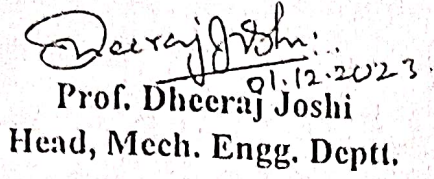 Dheeraj Joshi
01.12.2023
Prof. Dheeraj Joshi
Head, Mech. Engg. Deptt.